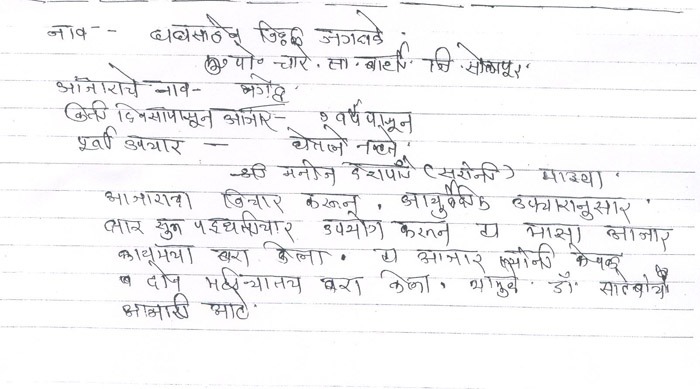 नाव -- बाबासाहेब विठ्ठल जगताप.
मु. पो. चारे. ता. बार्शी जि. सोलापूर.
आजाराचे नाव- भगेंद्र.
किती दिवसापासून आजार- १ वर्षे पासून
पूर्वी उपचार — घेतले नव्हते.
श्री मनोज देशपांडे (सरांनी) माझ्या.
आजाराचा विचार करून. आयुर्वेदिक उपचारानुसार
क्षार सुत्र पध्दतीचा उपयोग करून हा माझा आजार
कायमचा बरा केला. हा आजार त्यांनी केवळ
दोन महिन्यातच बरा केला. यामुळे डॉ. साहेबांचे
आभारी आहे.